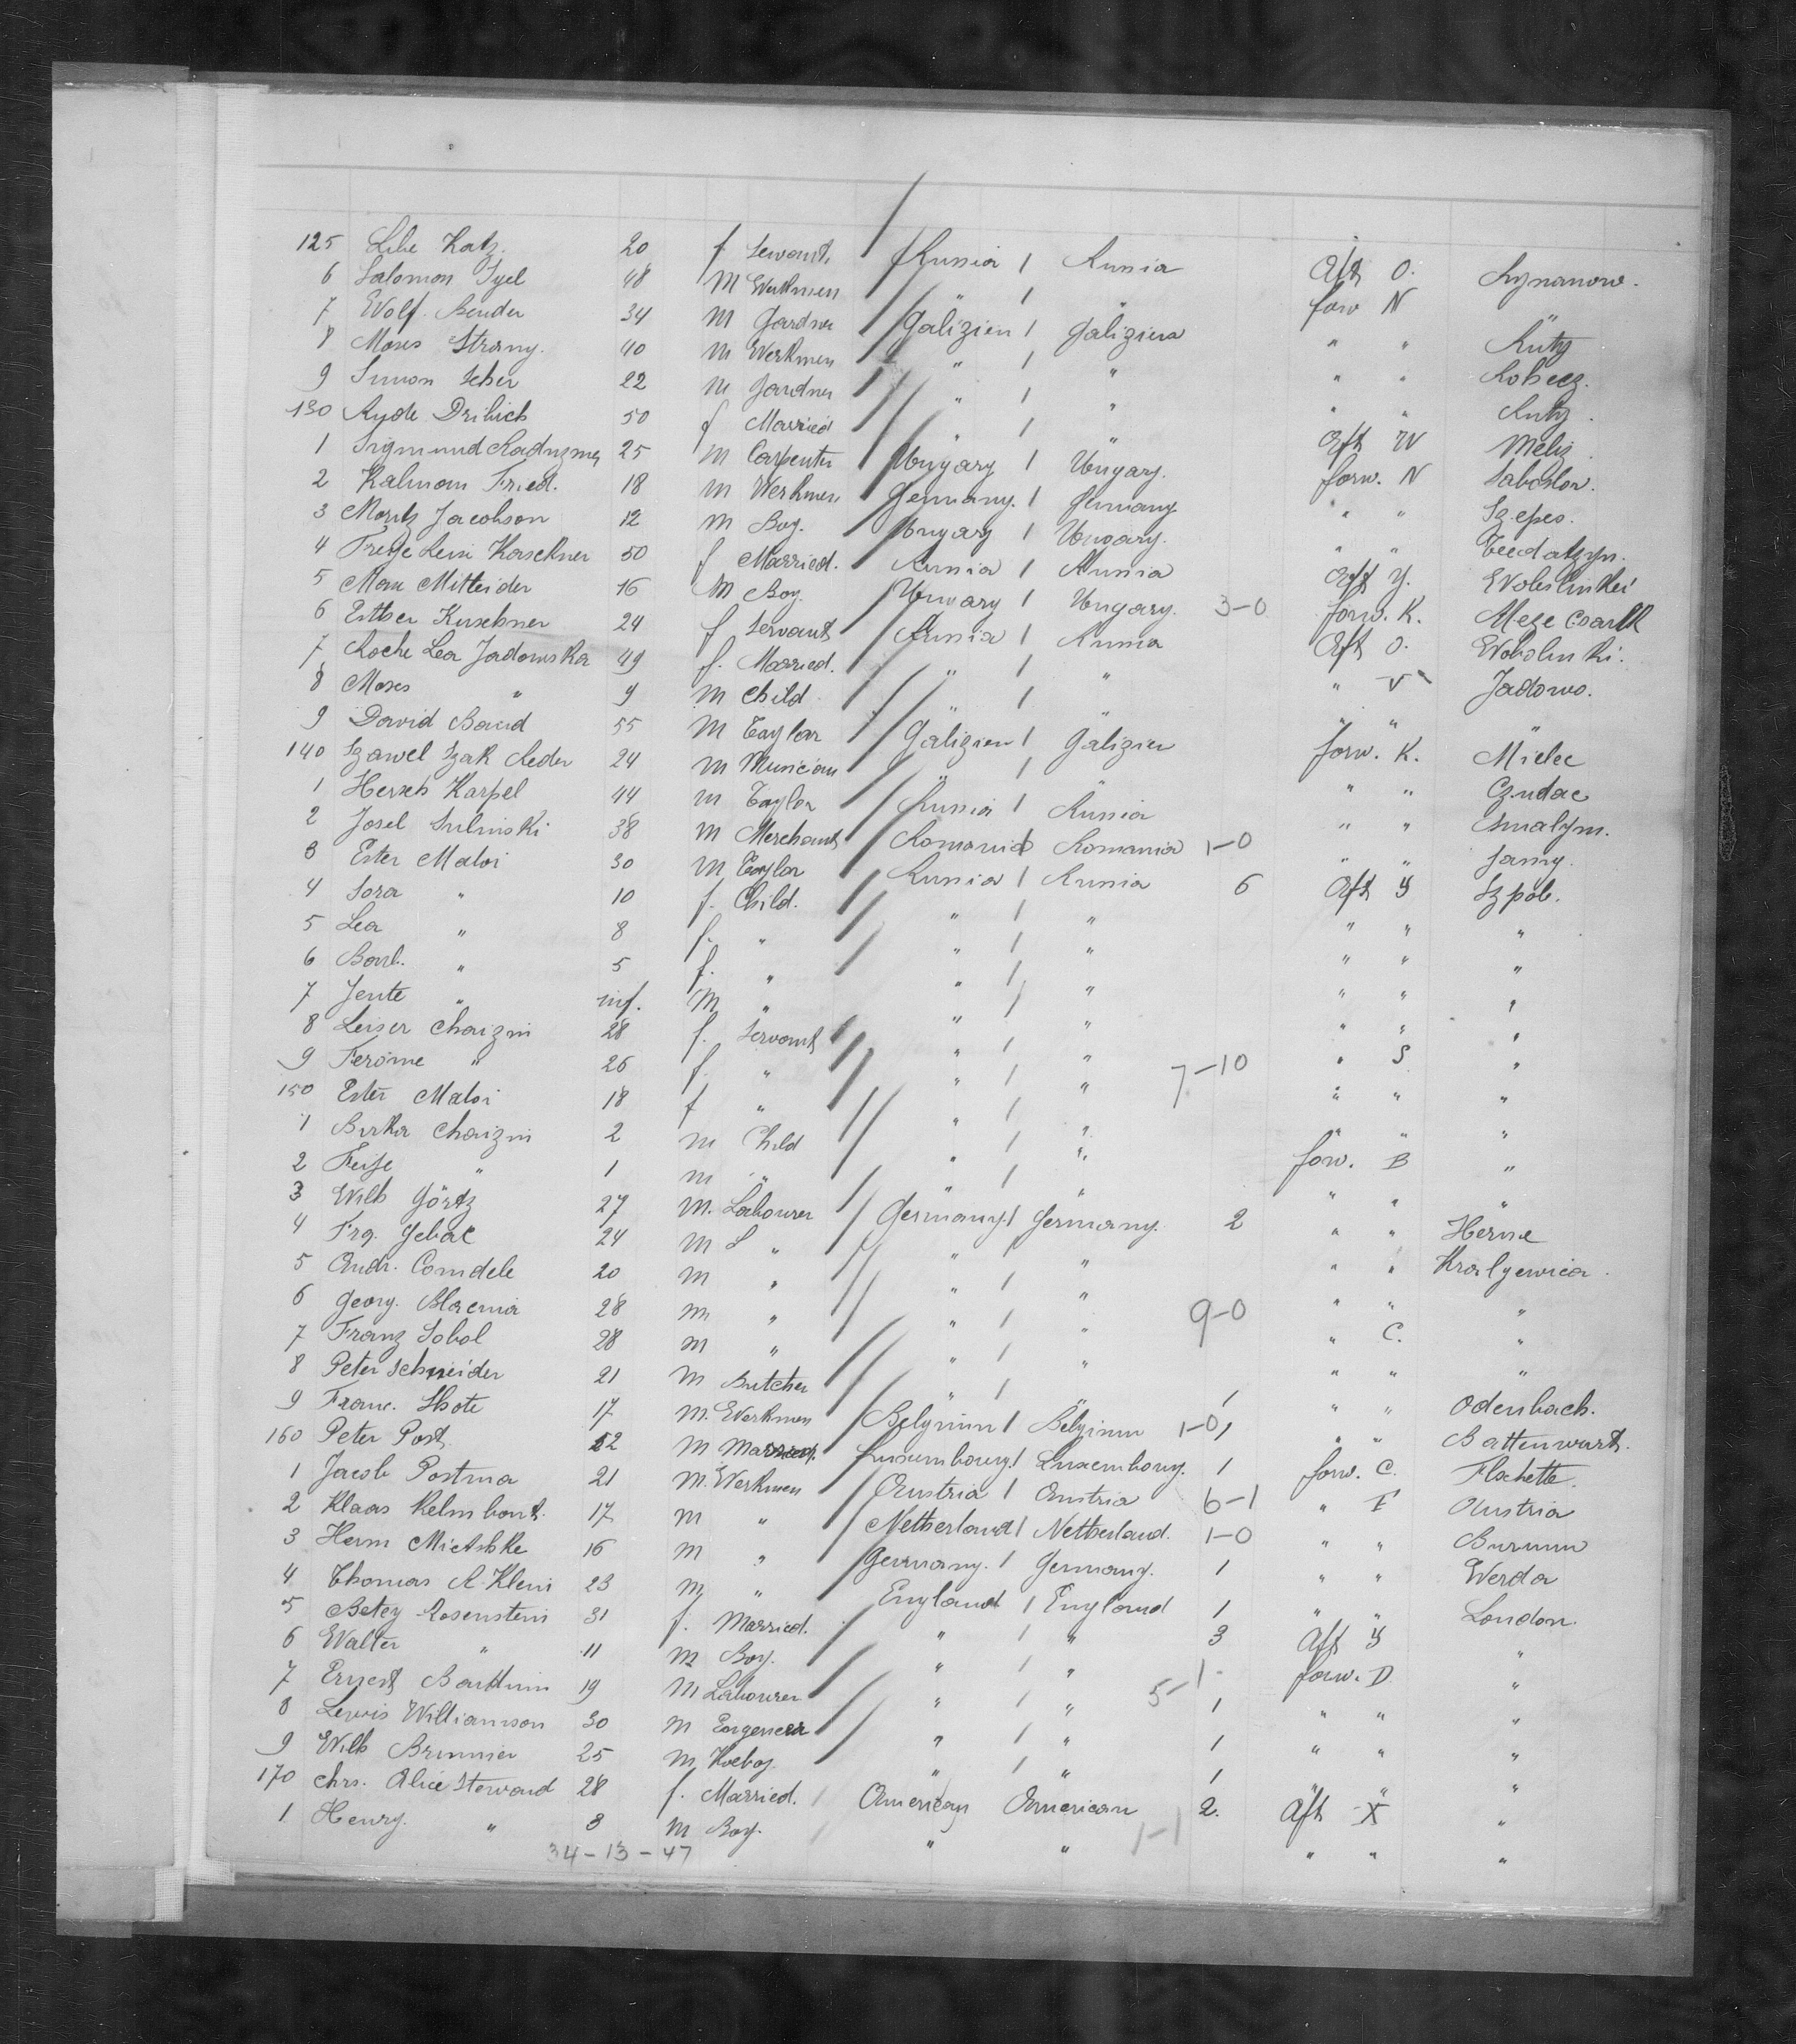 125 Libe Katz. 20 f. Servant. Russia / Russia Aft O. Rymanow.
6 Salomon Igel 48 M Werkmen " / " forw N
7 Wolf. Bender 34 M Gardner Galizien / Galizien " " Kuty
8 Moses Strang. 40 M Werkmen " / " " " Robecz.
9 Simon Scher 22 M Gardner " / " " " Kuty.
130 Ryde Dribich 50 f Married " / " Aft W Meliz
1 Sigmund 25 M Carpenter Ungary / Ungary. forw. N Saboslov.
2 Kalmom Fried. 18 M Werkmen Germany. / Germany " " Szepes.
3 Moritz Jacobson 12 M Boy. Ungary / Ungary. " "
4 Leisi Korschner 50 f Married. Russia / Russia Aft Y. Woboslinkei
5 Max Mitteider 16 M Boy. Ungary / Ungary. 3-0 forw. K. Meze Csarlk
6 Esther Kuschner 24 f Servant Russia / Russia Aft O. Wobolinki.
7 Roche Lea Jadowska 49 f. Married. " / " " V Jadowo.
8 Moses " 9 M Child " / " " " "
9 David Band 55 M Taylor Galizien / Galizien forw. K. Mielec
140 Szawel Szak Reder 24 M Musician " / " " " Czudac
1 Hersch Karpel 44 M Taylor Russia / Russia " "
2 Josel Sulinski 38 M Merchant Romania / Romania 1-0 " "
3 Ester Maloi 30 M Taylor Russia / Russia 6 Aft Y Szpol.
4 Sora " 10 f. Child. " / " " " "
5 Lea " 8 f. " " / " " " "
6 " 5 f. " " / " " " "
7 Jente " inf. M " " / " " " "
8 Leiser Chaizin 28 f. Servant " / " " S "
9 Ferome " 26 f. " " / " 7-10 " " "
150 Ester Maloi 18 f " " / " " " "
1 Birka Chaizin 2 M Child " / " forw. B "
2 Feise " 1 M " " / " " " "
3 Wilh Görtz 27 M. Labourer Germany. / Germany. 2 " " Herne
4 Frq. Gebac 24 M L " " / " " " Kraljewica.
5 Andr. Comdele 20 M " " / " " " "
6 Georg. Blacrnia 28 M " " / " 9-0 " C. "
7 Franz Sobol 28 M " " / " " " "
8 Peter Schneider 21 M Butcher " / " 1 " " Odenbach.
9 Franc. Shote 17 M. Werkmen Belgium / Belgium 1-0 1 " " Battenwart.
160 Peter Post. 52 M Married. Luxembourg. / Luxembourg. 1 forw. C. Flschette.
1 Jacob Postma 21 M. Werkmen Austria / Austria 6-1 " F Austria
2 Klaas Helmhout. 17 M " Netherland / Netherland. 1-0 " " Burum
3 Herm Mietshke 16 M " Germany. / Germany. 1 " " Werda
4 Thomas A. Klein 23 M " England / England 1 " " London.
5 Betsy Rosenstein 31 f. Married. " / " 3 Aft Y "
6 Walter " 11 M Boy. " / " forw. D. "
7 Ernest 19 M Labourer " / " 5-1 1 " " "
8 Lewis Williamson 30 M Engeneer " / " 1 " " "
9 Wilh Brimmer 25 M " / " 1 " " "
170 Chrs. Alice Steward 28 f. Married. / American American 2. Aft X "
1 Henry. " 3 M Boy. " " 1-1 " " "
34-13-47